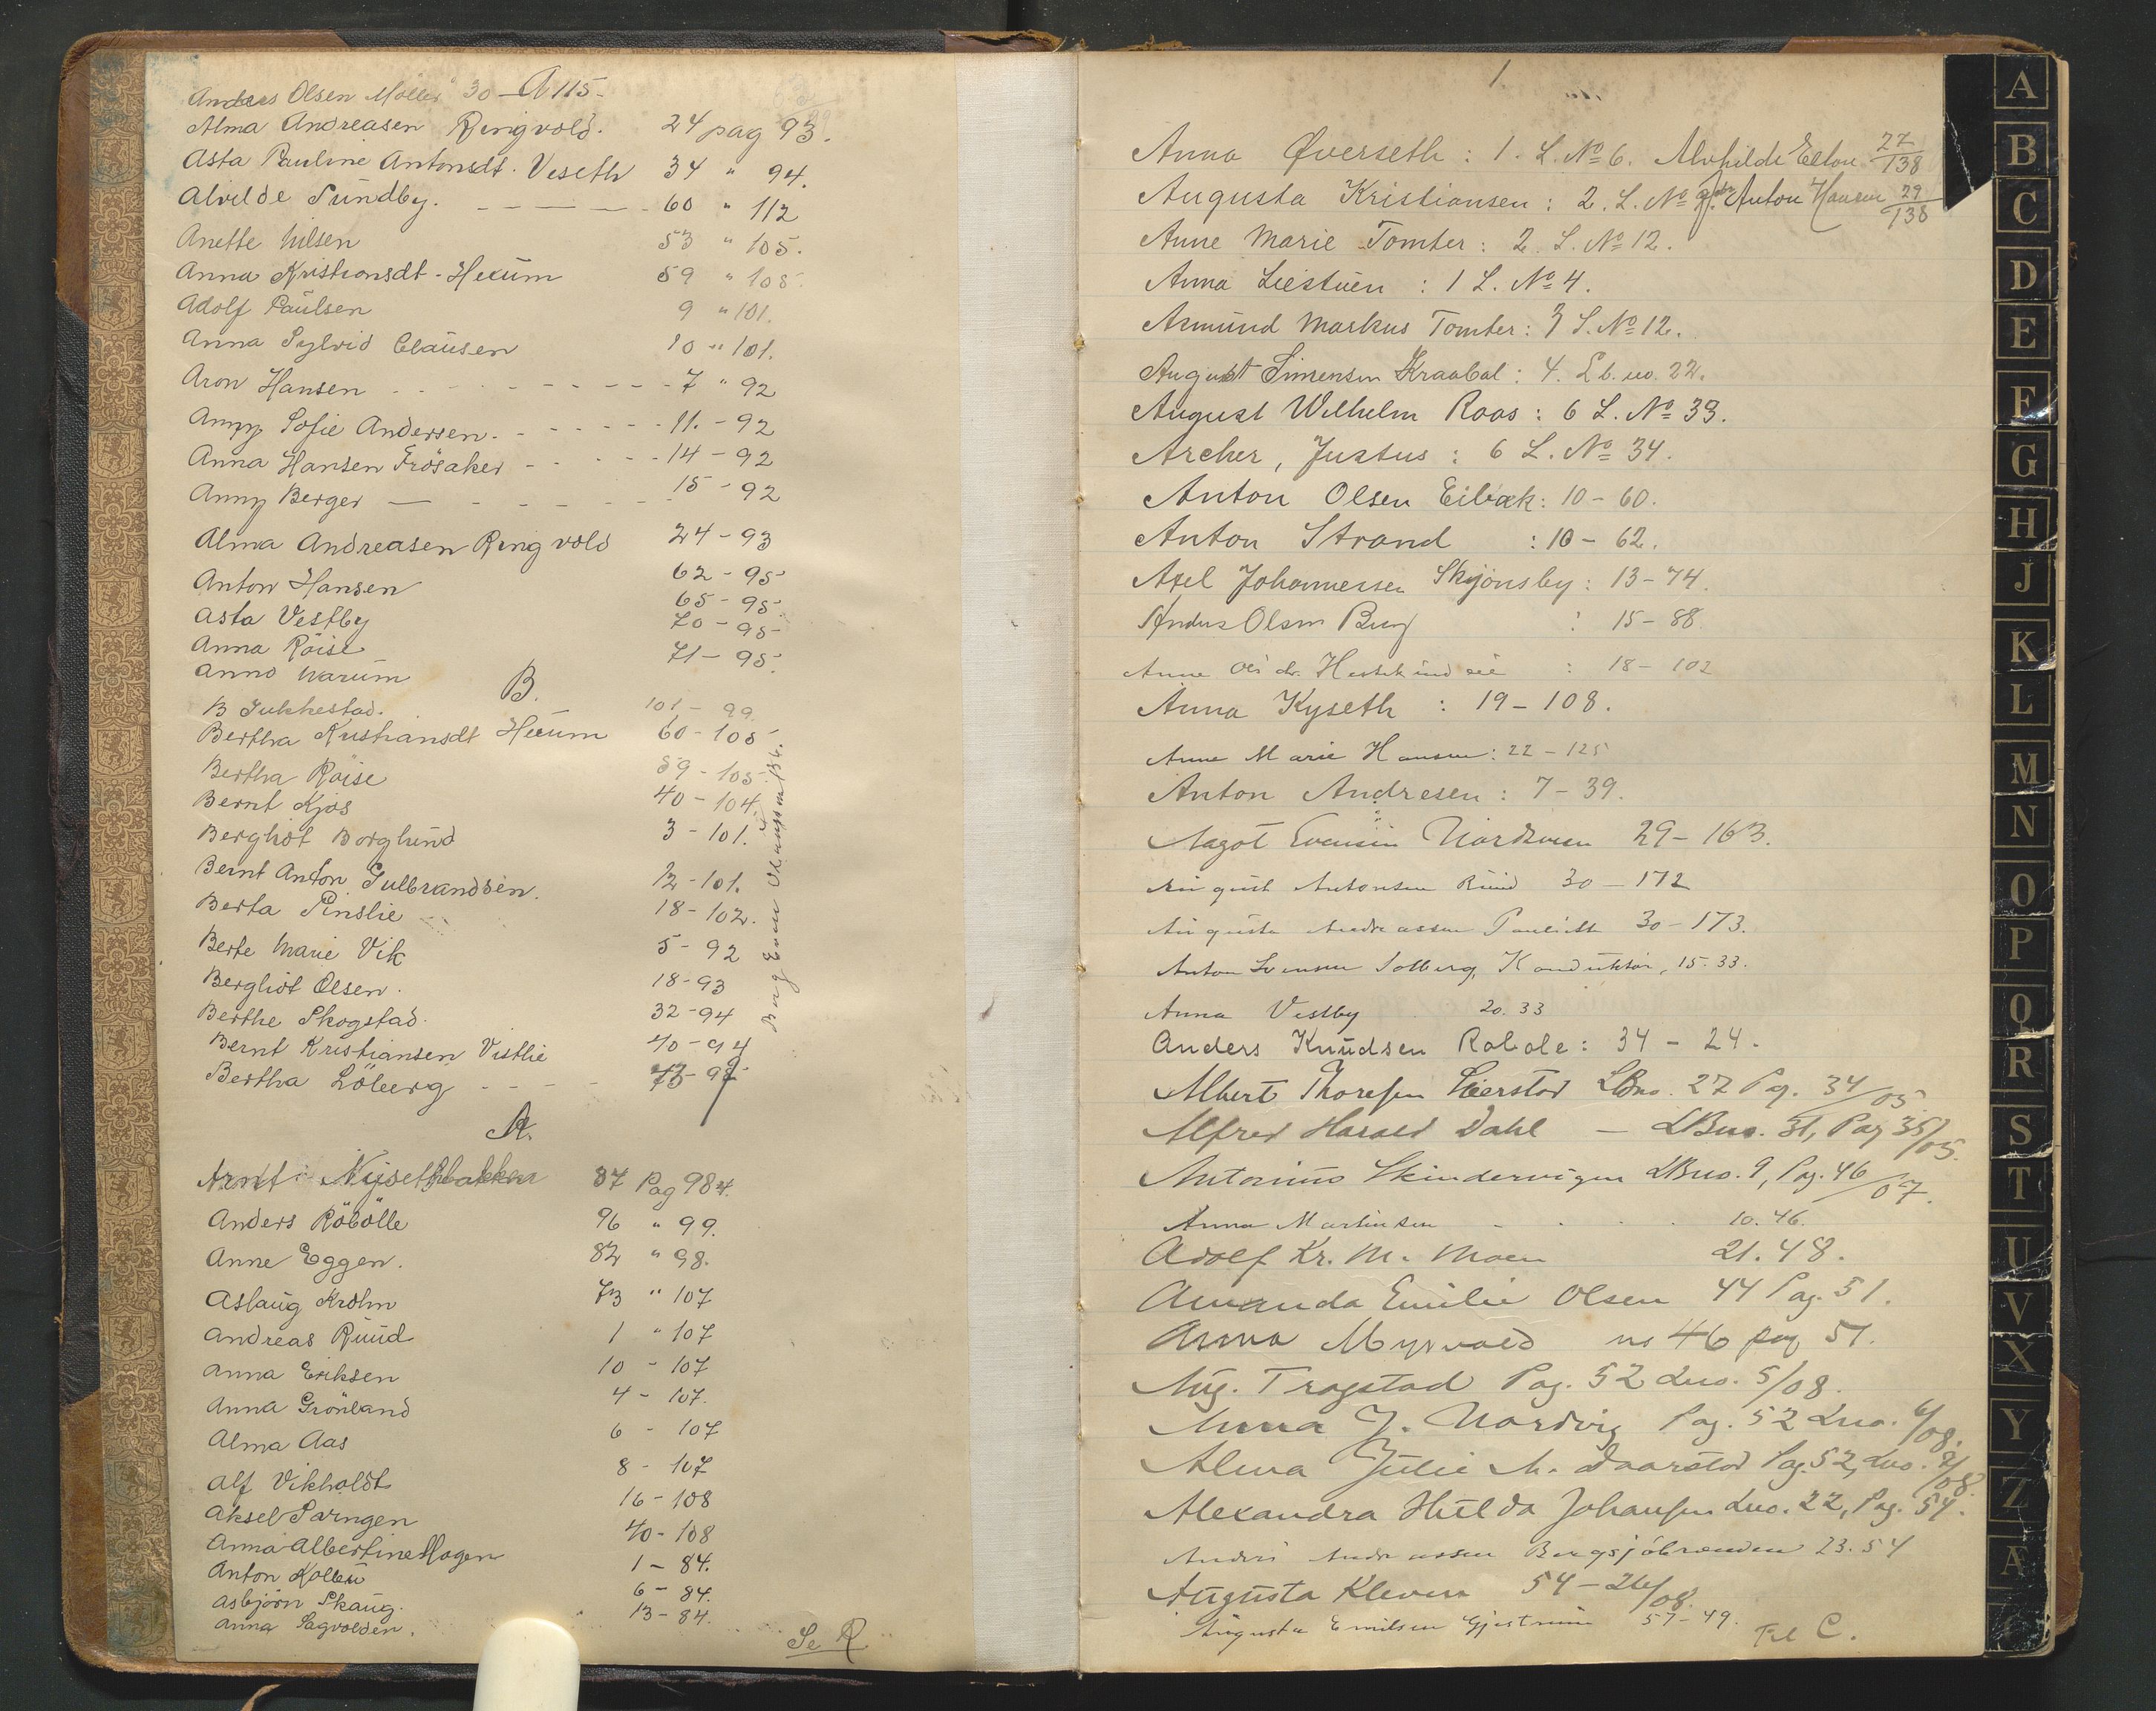 Anders Olsen Möller 30 - A 115 -
Alma Andreasen Ringvold. 24 pag 93.
Asta Pauline Antonsdt. Veseth 34 " 94.
Alvilde Sundby. 60 " 112
Anette Nilsen 53 " 105.
Anna Kristiansdt - Hexum 59 " 105.
Adolf Paulsen 9 " 101.
Anna Sylvid Clausen 10 " 101.
Aron Hansen 7 " 92
Anny Sofie Andersen. 11. - 92
Anna Hansen Frösaker 14 - 92
Anny Berger 15 - 92
Alma Andreasen Ringvold 24 - 93
Anton Hansen 62 - 95
Asta Vestby 65 - 95
Anna Röise 70 - 95
Anno Warum 71 - 95.
B.
B Jukkestad. 101 - 99
Bertha Kristiansdt Hexum 60 - 105
Bertha Röise 59 - 105
Bernt Kjos 40 - 104
Bergliot Borglund 3 - 101.
Bernt Anton Gulbrandsen. 12 - 101.
Berta Pinslie 18 - 102.
Berte Marie Vik 5 - 92
Bergliot Olsen. 18 - 93
Berthe Skogstad. 32 - 94
Bernt Kristiansen Vistlie 40 - 94
Bertha Löberg 73 - 95
A.
Arnt Nysethbakken 87 Pag 98
Anders Röbölle 96 " 99.
Anne Eggen. 82 " 98.
Aslaug Krohn 73 " 107
Andreas Ruud 1 " 107
Anna Eriksen 10 - 107
Anna Grönland 4 - 107.
Alma Aas 6 - 107
Alf Vikholdt 8 - 107
Aksel Parngen 16 - 108
Anna Albertine Hagen 40 - 108
Anton Kollen 1 - 84.
Asbjörn Skaug. 6 - 84.
Anna Sagvolden. 13 - 84.
Se R
1
Anna Øverseth : 1. L. No 6. Alvhilde Elton 27/138
Augusta Kristiansen : 2. L. No Anton Hansen 29/138
Anne Marie Tomter : 2 L. No 12.
Anna Liestuen : 1 L. No 4.
Armund Markus Tomter : 3 L. No 12.
August Simensen Kraabøl : 4. Lb. no. 22.
August Wilhelm Roos : 6 L. No 33.
Archer, Justus : 6 L. No 34.
Anton Olsen Eibæk : 10 - 60.
Anton Strand : 10 - 62.
Axel Johannessen Skjönsby : 13 - 74.
Anders Olsen Berg : 15 - 88.
Anne 18 - 102
Anna Kyseth : 19 - 108.
Anne Marie Hansen : 22 - 125
Anton Andresen : 7 - 39.
Aagot Evensen Nordveen 29 - 163.
August Antonsen Ruud 30 - 172
Augusta Andreassen 30 - 173.
Anton Svensen Solberg, Konduktör, 15. 33.
Anna Vestby 20. 33
Anders Knudsen Robole : 34 - 24.
Albert Thoresen Leerstad LBno. 27 Pg. 34/05
Alfred Harald Dahl - LBno. 31, Pag 35/05.
Antonius Skindervigen LBno. 9, Pg. 46/07.
Anna Martinsen 10. 46.
Adolf Kr. M. Moen 21. 48.
Amanda Emilie Olsen 44 Pag. 51.
Anna Myrvold no 46 pag 51.
Aug. Trogstad Pag. 52 Lno. 5/08.
Anna J. Nordvig Pag. 52 Lno. 6/08.
Alma Julie M. Daarstad Pag. 52, Lno. 2/08.
Alexandra Hulda Johansen Lno. 22, Pag. 54.
Anders Andreassen Bergsjöbraaden 23. 54
Augusta Kleven 54 - 26/08.
Augusta Emilsen Gjestrum 57 - 49.
Til C.
A
B
C
D
E
F
G
H
J
K
L
M
N
O
P
Q
R
S
T
U
V
X
Y
Z
Æ